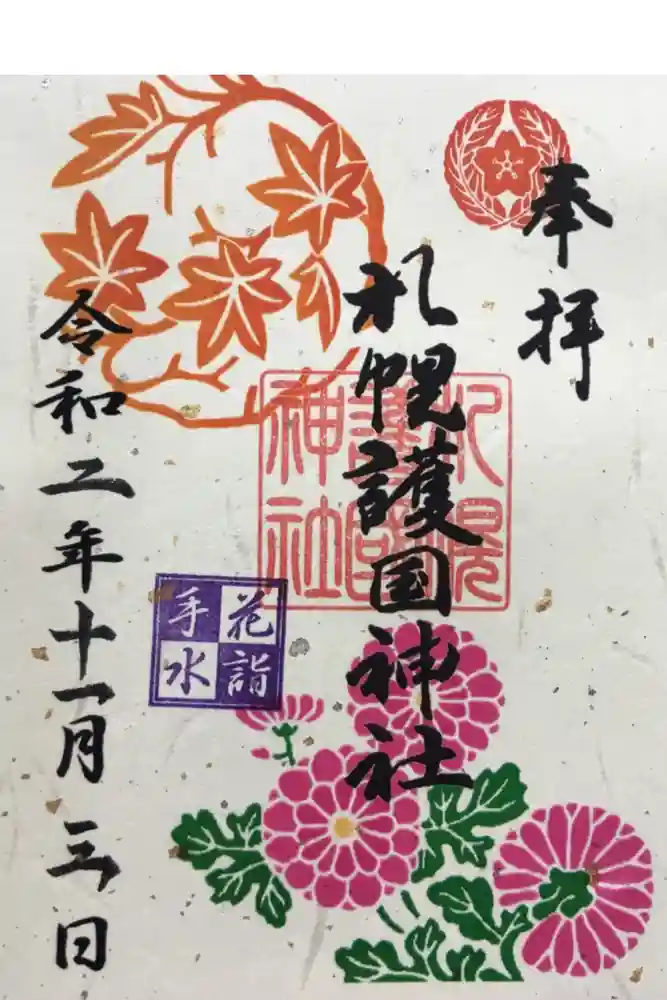 奉拝
札幌護国神社
札幌
護国
神社
花詣
手水
令和二年十一月三日